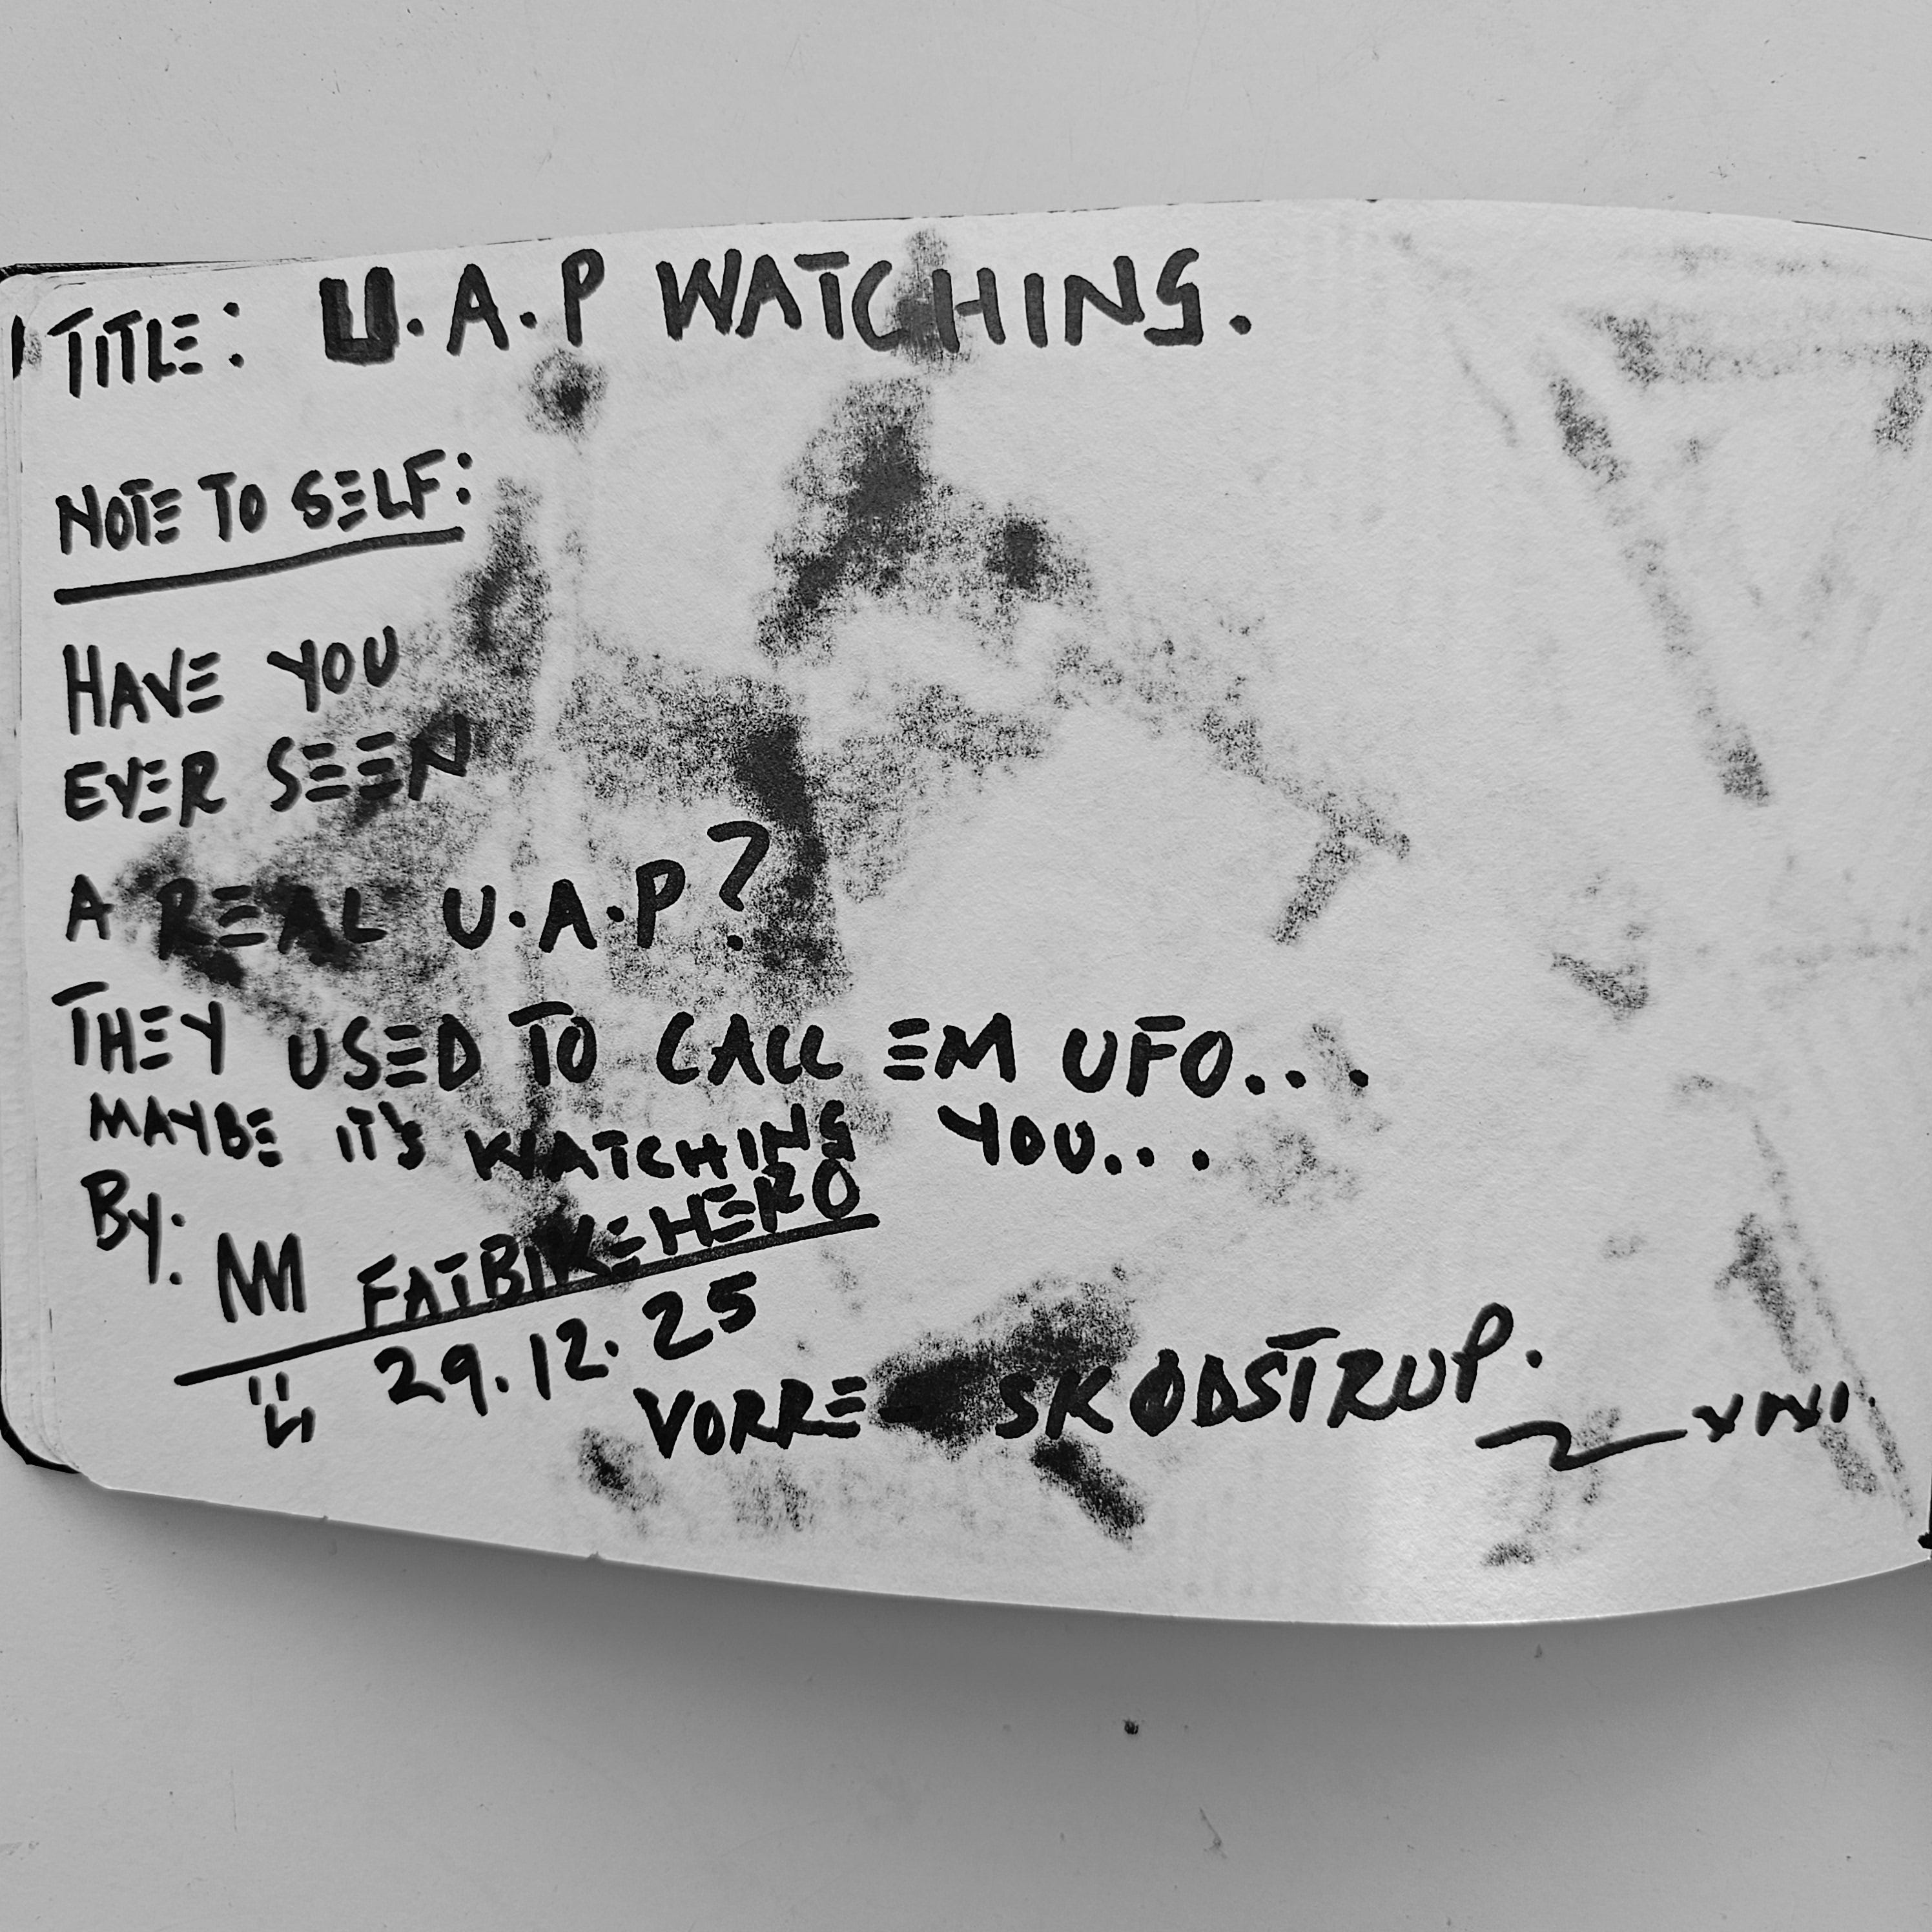 TITLE: U.A.P WATCHING.
NOTE TO SELF:
HAVE YOU
EVER SEEN
A REAL U.A.P?
THEY USED TO CALL EM UFO...
MAYBE IT'S WATCHING YOU...
BY:
FATBIKEHERO
29.12.25
VORRE - SKØDSTRUP.